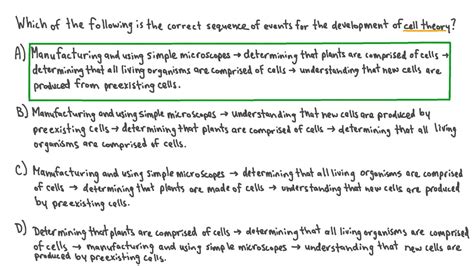 Which of the following is the correct sequence of events for the development of cell theory?
A) Manufacturing and using simple microscopes → determining that plants are comprised of cells →
determining that all living organisms are comprised of cells → understanding that new cells are
produced from preexisting cells.
B) Manufacturing and using simple microscopes → understanding that new cells are produced by
preexisting cells → determining that plants are comprised of cells → determining that all living
organisms are comprised of cells.
C) Manufacturing and using simple microscopes → determining that all living organisms are comprised
of cells → determining that plants are made of cells → understanding that new cells are produced
by preexisting cells.
D) Determining that plants are comprised of cells → determining that all living organisms are comprised
of cells → manufacturing and using simple microscopes → understanding that new cells are
produced by preexisting cells.